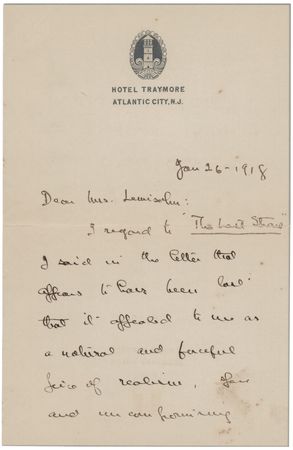 HOTEL TRAYMORE
ATLANTIC CITY, N.J.
Jan 26 - 1918
Dear Mrs. Lewisohn:
I regard to "The Last Straw"
I said in the letter that
appears to have been lost
that it appealed to me as
a natural and forceful
piece of realism,
and uncompromising